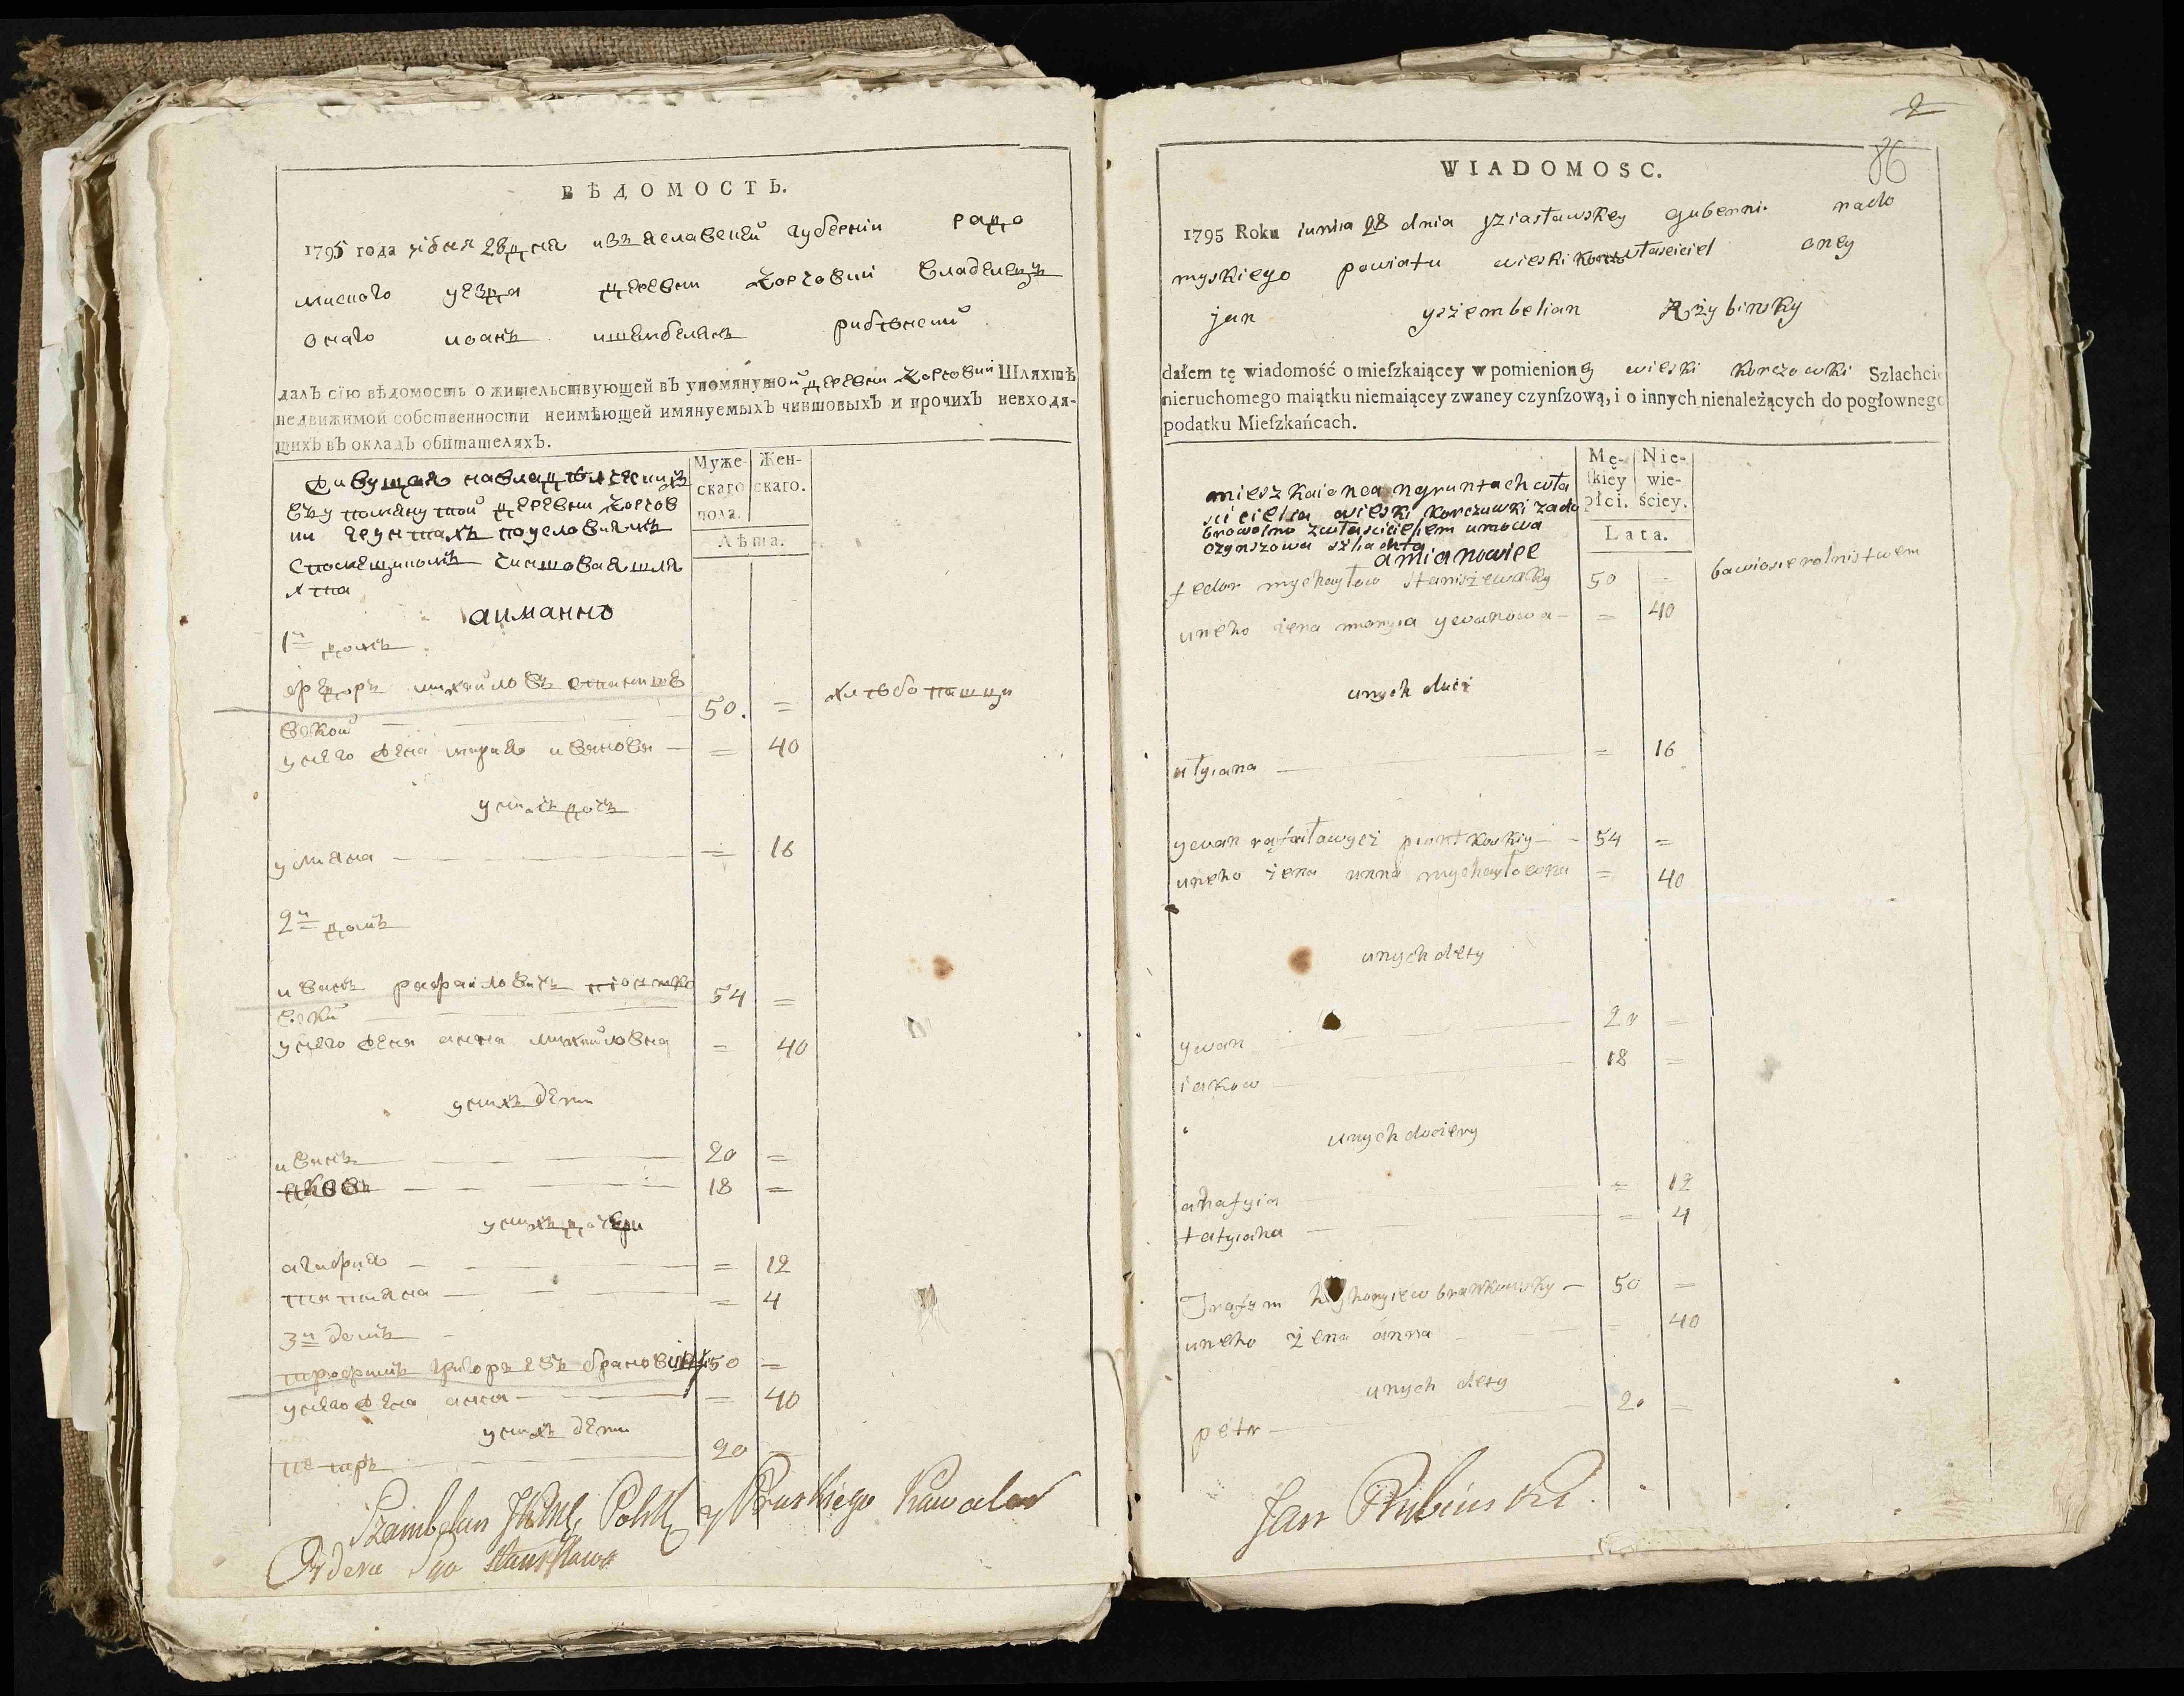 ВѢДОМОСТЬ.
1795 года июня 28 дня изяславской губернии радо
мыского уезда деревни корчовки владелецъ
оного иоанъ ишамбелянъ рибѣнский
далъ сїю вѣдомость о жительствующей въ упомянутой деревни корчовки Шляхтѣ
недвижимой собственности неимѣющей имянуемыхъ чиншовыхъ и прочихъ невходя-
щихъ въ окладъ обитателяхъ.
Муже-
скаго
пола.
Жен-
скаго.
Лѣта.
живущая навладѣлческихъ
въ упомянутой деревни корчов
ки грунтахъ поусловиямъ
спомещикомъ чиншовая шля
хта
аимянно
1й домъ
федоръ михайловъ станишев
ский 50. = хлѣбопашцы
унего жена мария иванова = 40
унихъ дочь
улияна = 16
2й домъ
иванъ рафаиловичъ піонтко
вский 54 =
унего жена анна михайловна = 40
унихъ дети
иванъ 20 =
яковъ 18 =
унихъ дочери
агафия = 12
татияна = 4
3й домъ
трофимъ григорьевъ 50 =
унего жена анна = 40
унихъ дети
петръ 20
Szambelan Polsk y Pruskiego Kawaler
Orderu Sgo Stanisława
2
86
WIADOMOSC.
1795 Roku iunia 28 dnia yziasławskey guberni. rado
myskiego powiatu wieski właściciel oney
jan yszembelian Rżybinsky
dałem tę wiadomość o mieſzkaiącey w pomienioney wieski korczowki Szlachcie
nieruchomego maiątku niemaiącey zwaney czynſzową, i o innych nienależących do pogłownego
podatku Mieſzkańcach.
Mę-
ſkiey
płci.
Nie-
wie-
ściey.
Lata.
mieszkaienca nagruntach wła
sciciela wieski korczowki zado
browolno zwłascicielem umowa
czynszowa szlachta
amianowice
fedor mychayłow staniszewsky 50 = bawiosie rolnistwem
uneho żena maryia ywanowa = 40
unych doci
ulyiana = 16
ywan rafaiławycz piontkoskiy 54 =
uneho żena anna mychayłowna = 40
unych dety
ywan 20 =
iakow 18 =
unych doczery
ahafyia = 12
tatyiana = 4
Trafym hryhoryiew brankowsky 50 =
uneho żena anna = 40
unych dety
petr 20 =
Jan Rubinski